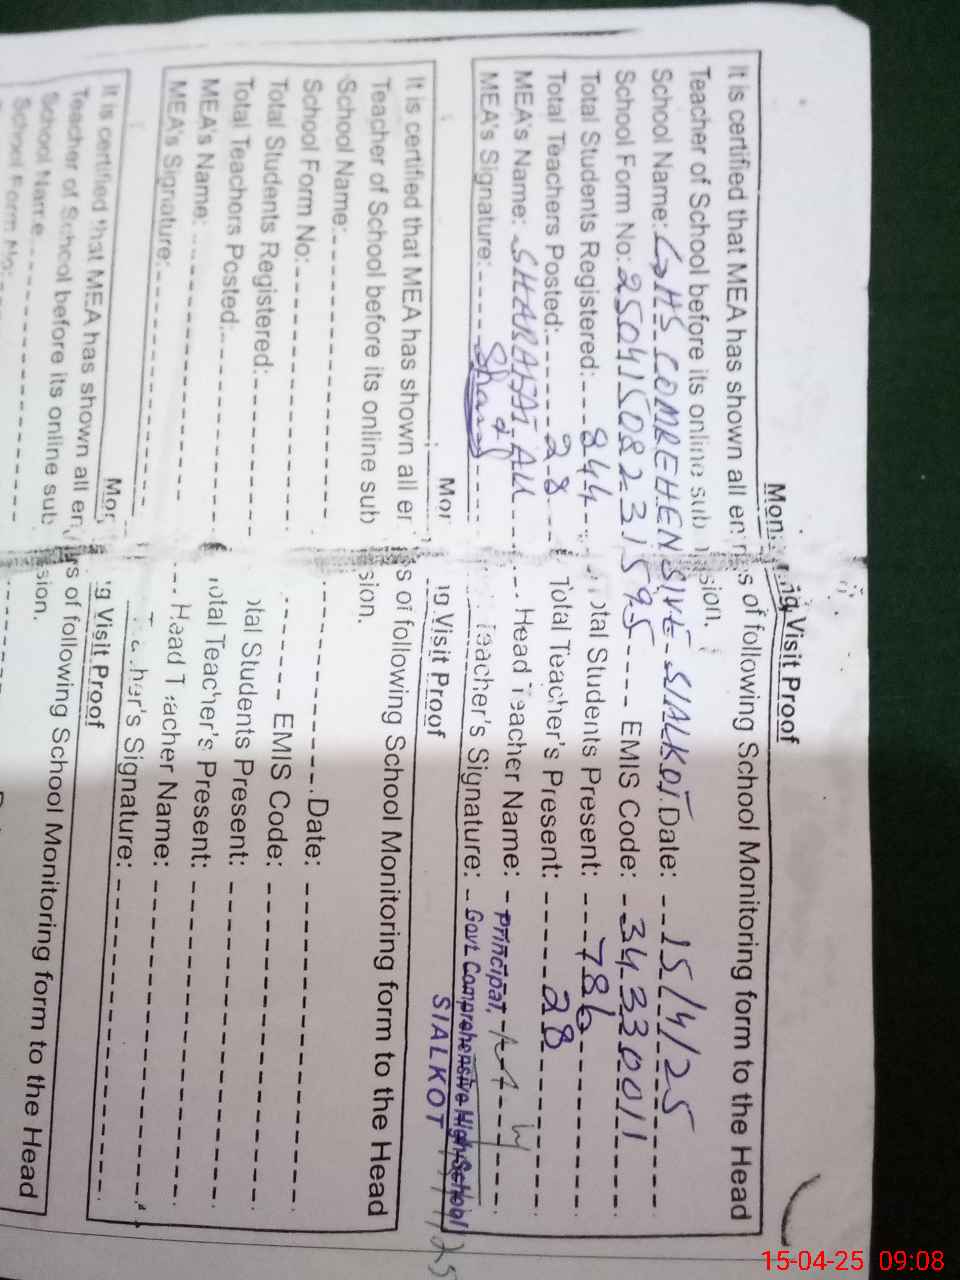 Mon ng Visit Proof
It is certified that MEA has shown all en s of following School Monitoring form to the Head
Teacher of School before its online sub sion.
School Name: GHS COMREHENSIVE SIALKOT Date: 15/4/25
School Form No: 25041508231595 EMIS Code: 34330011
Total Students Registered: 844 tal Students Present: 786
Total Teachers Posted: 28 Total Teacher's Present: 28
MEA's Name: SHARAFAT ALI Head Teacher Name: Principal,
MEA's Signature: Teacher's Signature: Govt Comprehensive High School
SIALKOT
Mor ng Visit Proof
It is certified that MEA has shown all er s of following School Monitoring form to the Head
Teacher of School before its online sub sion.
School Name: Date:
School Form No: EMIS Code:
Total Students Registered: tal Students Present:
Total Teachers Posted: otal Teacher's Present:
MEA's Name: Head Teacher Name:
MEA's Signature: her's Signature:
Mor g Visit Proof
It is certified that MEA has shown all en rs of following School Monitoring form to the Head
Teacher of School before its online sub sion.
School Name
School Form No:
15-04-25 09:08